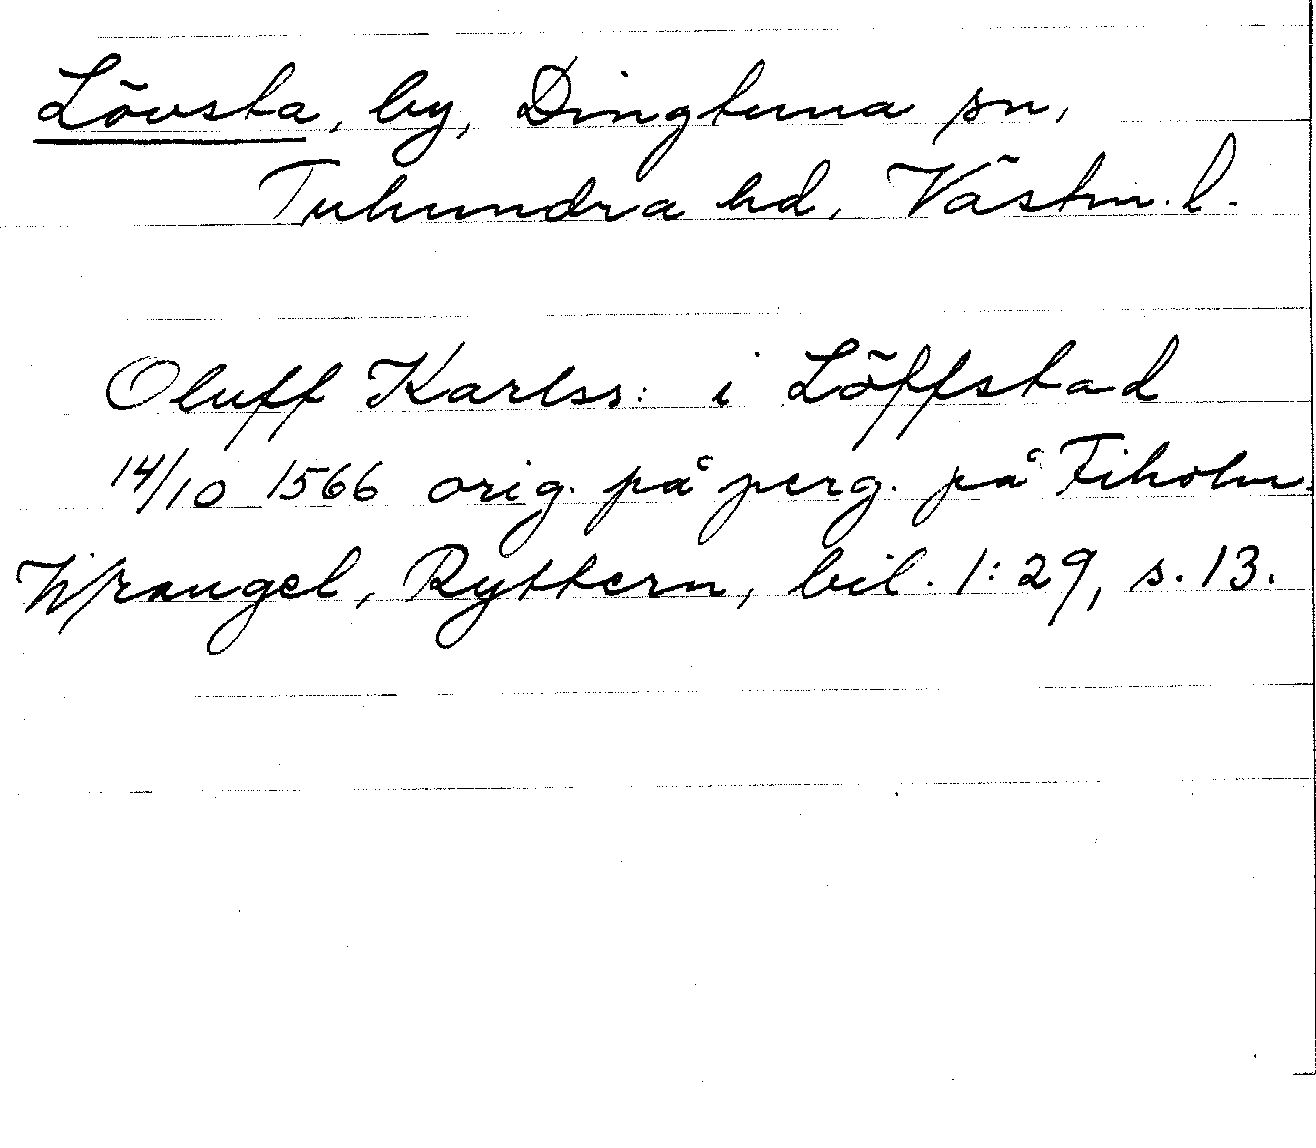 Lövsta, by, Dingtuna sn,
Tuhundra hd, Västm. l.
Oluff Karlss: i Löffstad
14/10 1566 orig. på perg. på Fiholm.
Wrangel, Ryttern, bil. 1:29, s. 13.